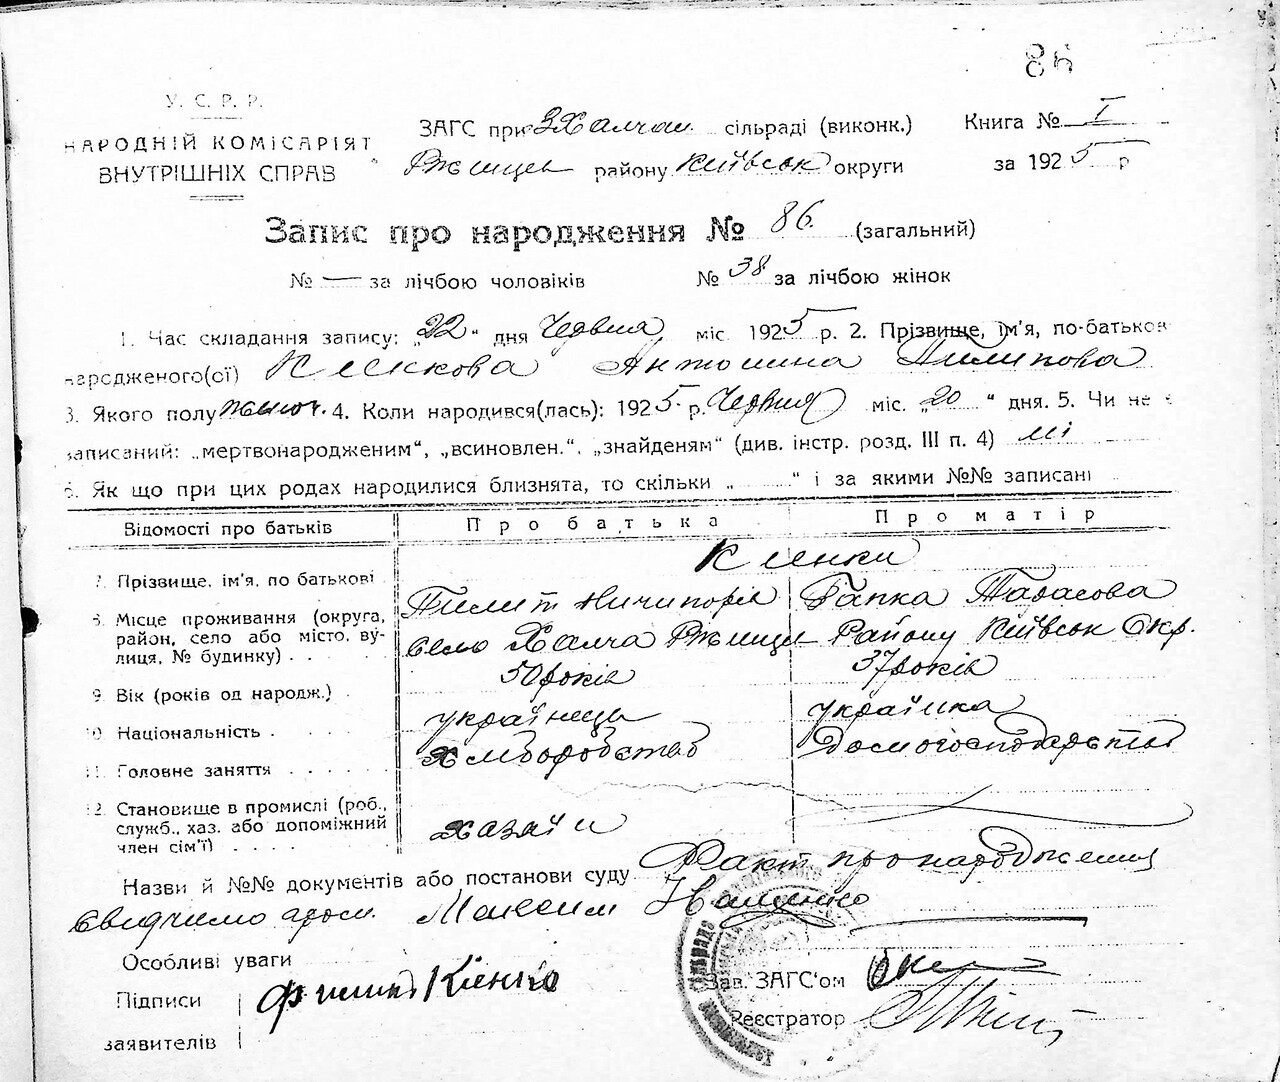 86
У. С. Р. Р.
НАРОДНІЙ КОМІСАРІЯТ
ВНУТРІШНІХ СПРАВ
ЗАГС при Халчан. сільраді (виконк.)
Ржищев району Київськ округи
Книга № I
за 1925 р
Запис про народження № 86. (загальний)
№ — за лічбою чоловіків № 38 за лічбою жінок
1. Час складання запису: „22“ дня Червня міс. 1925 р. 2. Прізвище, ім'я, по-батьков
народженого(ої) Антонина Пилипова
3. Якого полу жіноч. 4. Коли народився(лась): 1925 р. Червня міс. „20“ дня. 5. Чи не є
записаний: „мертвонародженим“, „всиновлен.“, „знайденям“ (див. інстр. розд. III п. 4) ні
6. Як що при цих родах народилися близнята, то скільки „ “ і за якими №№ записані
Відомості про батьків Про батька Про матір
7. Прізвище, ім'я, по батькові
Пилип Ничипорів Гапка Тарасова
8. Місце проживання (округа, район, село або місто, вулиця, № будинку)
село Халча Ржищ. Району Київськ Окр.
9. Вік (років од народж.) 50 років 37 років
10. Національність українець українка
11. Головне заняття хліборобство Домогосподарство
12. Становище в промислі (роб., служб., хаз. або допоміжний член сім'ї) хазяїн
Назви й №№ документів або постанови суду Факт про народження
свідчимо гром. Максим Іващенко
Особливі уваги
Підписи
заявителів
Зав. ЗАГС'ом
Реєстратор